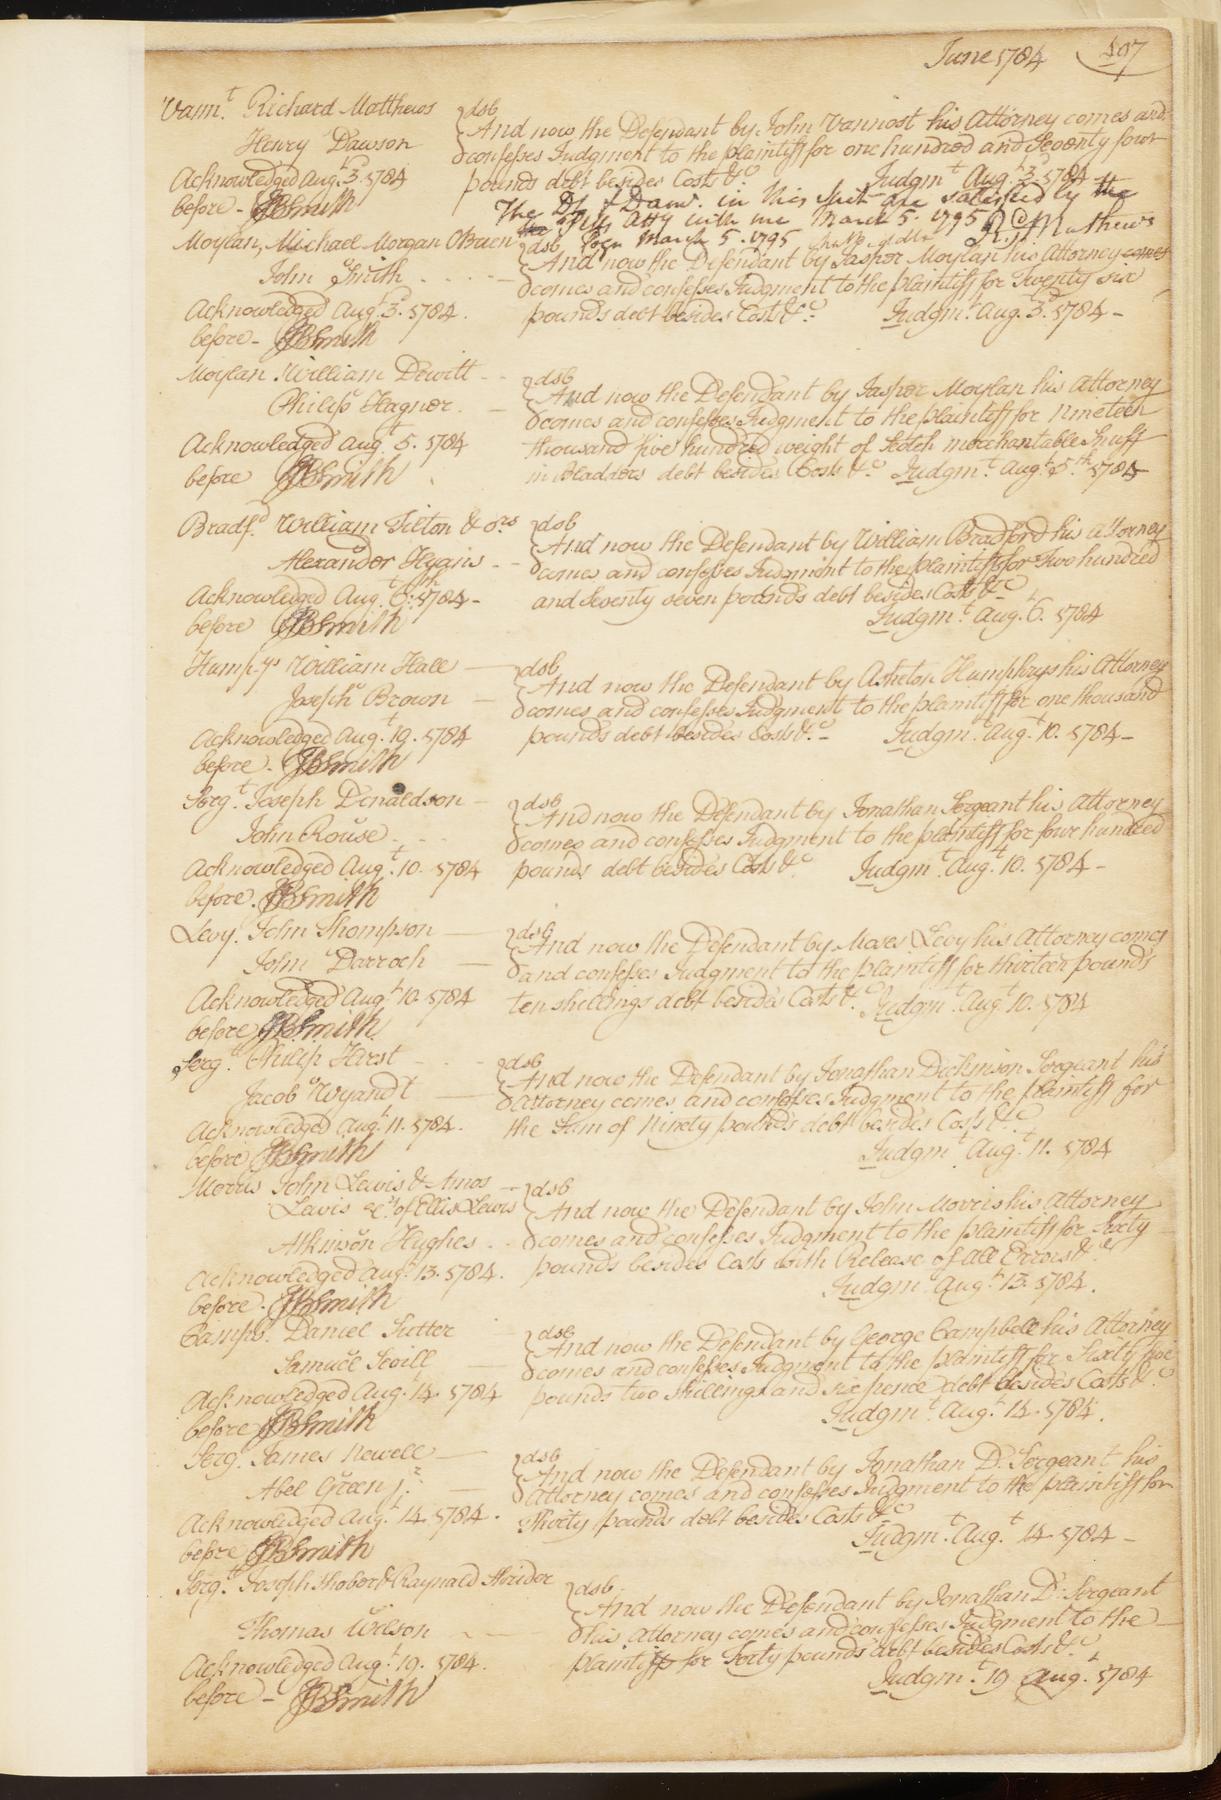 June 1784 107
Vann.t Richard Matthews } dsb
And now the Defendant by John Vannost his Attorney comes and
Henry Dawson
confesses Judgment to the plaintiff for one hundred and Seventy four
Acknowledged Aug.t 3. 1784 pounds debt besides Costs &c. Judgm.t Aug.t 3.d 1784
before - JBSmith
The Dt. & Dam. in this suit are satisfied by the
Atty with me March 5. 1795 Rd. Mathews
Moylan, Michael Morgan OBrien } dsb March 5. 1795
And now the Defendant by Jasper Moylan his Attorney
John Smith
comes and confesses Judgment to the plaintiff for Twenty six
Acknowledged Aug.t 3.d 1784. pounds debt besides Costs &c. Judgm.t Aug.t 3.d 1784 -
before - JBSmith
Moylan. William Dewitt } dsb
And now the Defendant by Jasper Moylan his Attorney
Philip Hagner. comes and confesses Judgment to the plaintiff for nineteen
Acknowledged Aug.t 5. 1784 thousand five hundred weight of Scotch merchantable Snuff
before JBSmith in Bladders debt besides Costs &c. Judgm.t Aug.t 5.th 1784
Bradf.d William Tilton & ors } dsb
And now the Defendant by William Bradford his Attorney
Alexander Hyguis comes and confesses Judgment to the plaintiffs for Two hundred
Acknowledged Aug.t 6.th 1784 - and Seventy seven pounds debt besides Costs &c.
before JBSmith Judgm.t Aug.t 6. 1784
Hump.ys William Hall } dsb
And now the Defendant by Asheton Humphrys his Attorney
Joseph Brown comes and confesses Judgment to the plaintiff for one thousand
Acknowledged Aug.t 19. 1784 pounds debt besides Costs &c. - Judgm.t Aug.t 10. 1784 -
before. JBSmith
Serg.t Joseph Donaldson } dsb
And now the Defendant by Jonathan Sergeant his Attorney
John Rouse comes and confesses Judgment to the plaintiff for four hundred
Acknowledged Aug.t 10. 1784 pounds debt besides Costs &c. Judgm.t Aug.t 10. 1784 -
before. JBSmith
Levy. John Thompson } dsb
And now the Defendant by Moses Levy his Attorney comes
John Darroch and confesses Judgment to the plaintiff for thirteen pounds
Acknowledged Aug.t 10. 1784 ten shillings debt besides Costs &c. Judgm.t Aug.t 10. 1784
before JBSmith
Serg.t Philip Hirst } dsb
And now the Defendant by Jonathan Dickinson Sergeant his
Jacob Wyandt Attorney comes and confesses Judgment to the plaintiff for
Acknowledged Aug.t 11. 1784. the Sum of Ninety pounds debt besides Costs &c.
before JBSmith Judgm.t Aug.t 11. 1784
Morris John Lewis & Amos } dsb
Lewis of Ellis Lewis And now the Defendant by John Morris his Attorney
Atkinson Hughes comes and confesses Judgment to the plaintiff for Sixty
Acknowledged Aug.t 13. 1784. pounds besides Costs with Release of all Errors &c.
before. JBSmith Judgm.t Aug.t 13. 1784.
Camp.l Daniel Sutter } dsb
And now the Defendant by George Campbell his Attorney
Samuel Scoill comes and confesses Judgment to the plaintiff for Sixty five
Acknowledged Aug.t 14. 1784 pounds two shillings and six pence debt besides Costs &c.
before JBSmith Judgm.t Aug.t 14. 1784.
Serg. James Newell } dsb
And now the Defendant by Jonathan D. Sergeant his
Abel Green j.r Attorney comes and confesses Judgment to the plaintiff for
Acknowledged Aug.t 14. 1784. thirty pounds debt besides Costs &c.
before JBSmith Judgm.t Aug.t 14. 1784 -
Serg.t Joseph Shober & Raynald Shrider } dsb
And now the Defendant by Jonathan D. Sergeant
Thomas Wilson his Attorney comes and confesses Judgment to the
Acknowledged Aug.t 19. 1784. plaintiff for Forty pounds debt besides Costs &c.
before - JBSmith Judgm.t 19 Aug.t 1784